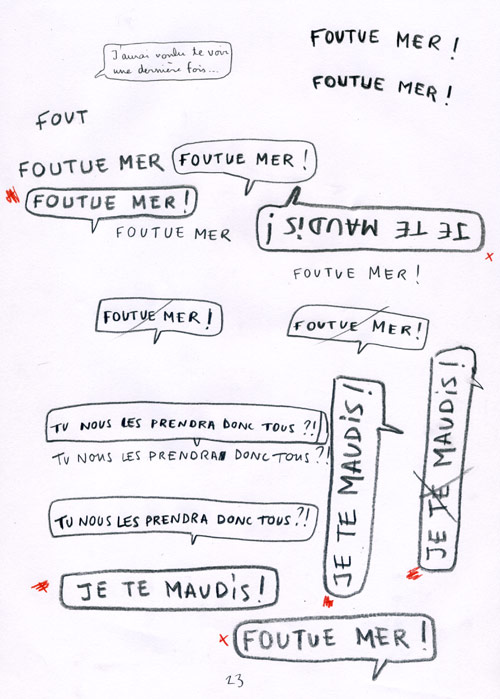 J'aurai voulu te voir
une dernière fois...
FOUTUE MER !
FOUTUE MER !
FOUT
FOUTUE MER
FOUTUE MER !
FOUTUE MER !
FOUTUE MER
JE TE MAUDIS !
FOUTUE MER !
FOUTUE MER !
FOUTUE MER !
TU NOUS LES PRENDRA DONC TOUS ?!
TU NOUS LES PRENDRA DONC TOUS ?!
TU NOUS LES PRENDRA DONC TOUS ?!
JE TE MAUDIS !
JE TE MAUDIS !
JE TE MAUDIS !
FOUTUE MER !
23